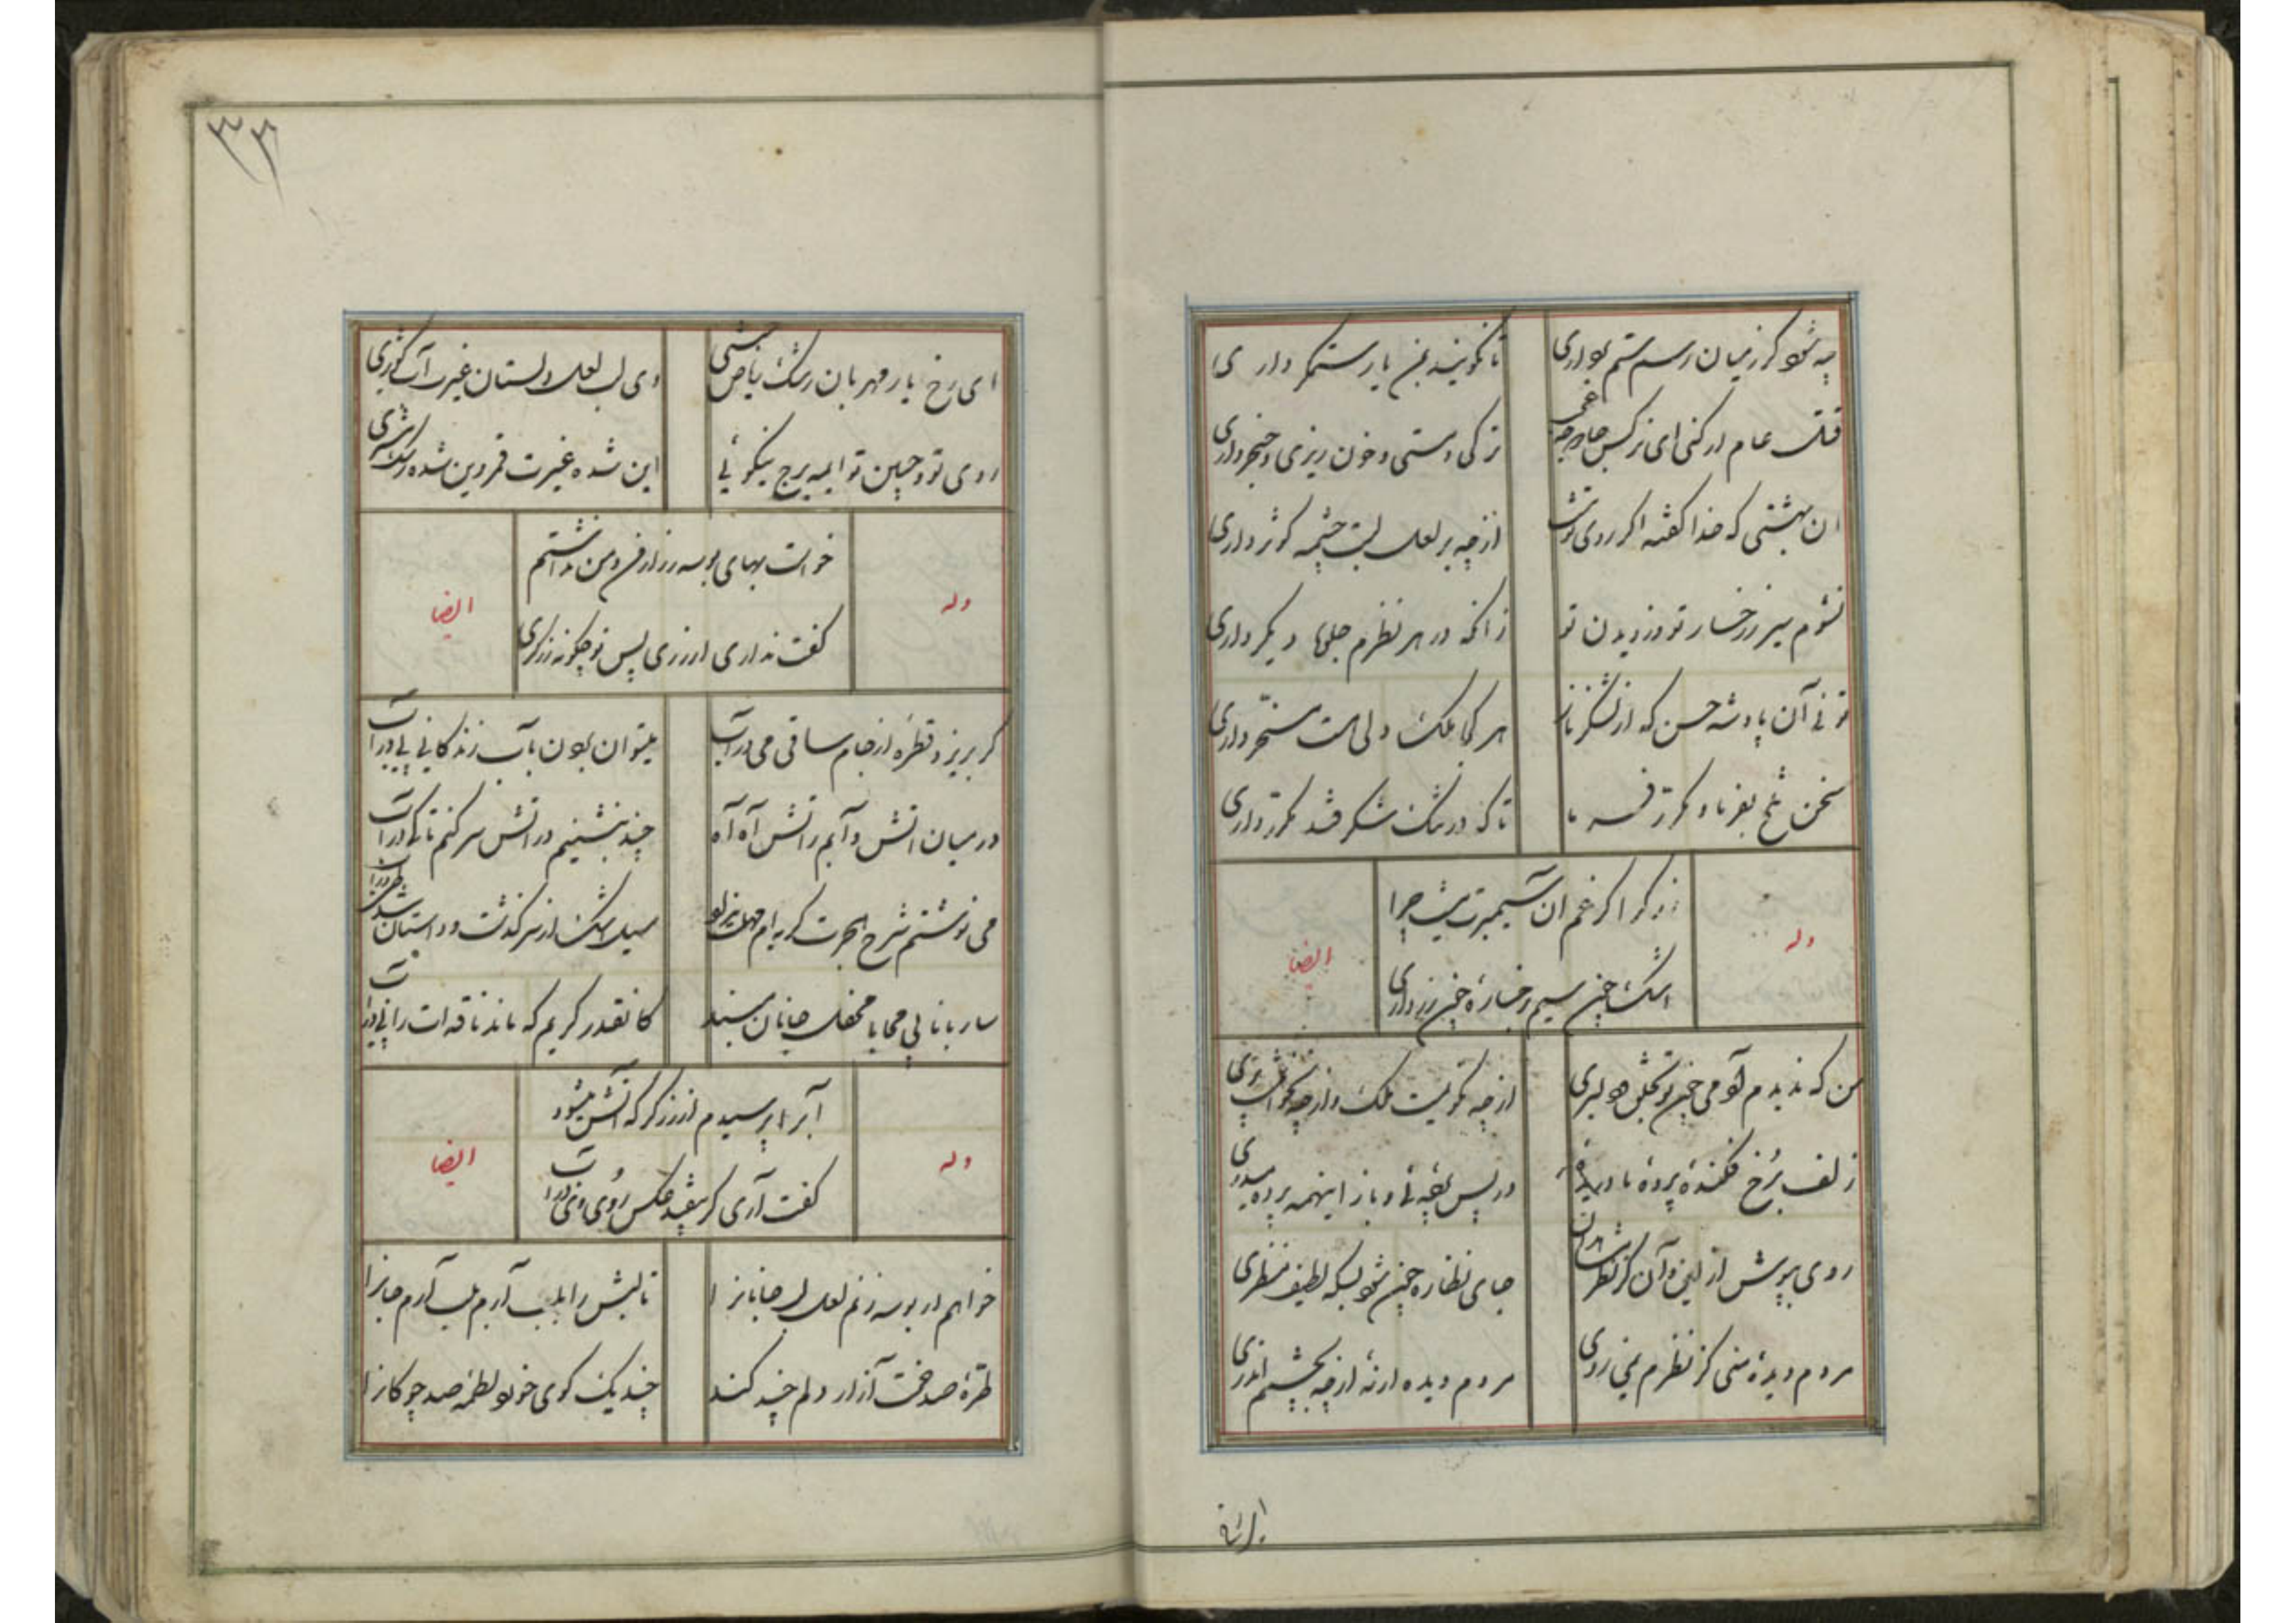 چه شود کز میان رسم ستم برداری
تا نگویند بمن یار ستمگر داری
قتل عام ار کنی ای نرگس جادو چه عجب
ترکی و مستی و خون ریزی و خنجر داری
ان بهشتی که خدا گفته اگر روی تو نیست
از چه بر لعل لبت چشمه کوثر داری
نشوم سیر ز رخسار تو و ز دیدن تو
زانکه در هر نظرم جلوۀ دیگر داری
توئی آن پادشه حسن که از لشکر ناز
هر کجا ملک دلی هست مسخّر داری
سخن تلخ بفرما و مکرّر فرما
تا که در تنگ شکر قند مکرّر داری
وله
زرگرا گر غم ان سیمبرت نیست چرا
اشک چون سیم و رخسارۀ چون زر داری
ایضا
من که ندیدم آدمی چون تو بشکل دلبری
از چه نگویمت ملک و از چه نخوانمت پری
زلف برخ فکندۀ پردۀ ما دریدۀ
در پس پردۀ و باز اینهمه پرده میدری
روی بپوش از این و آن کز نظر
جای نظاره چون شود بسکه لطیف منظری
مردم دیدۀ منی کز نظرم نمی روی
مردم دیده ار نۀ از چه بچشم اندری
ای رخ
ای رخ یار مهربان رشک ریاض جنتی
وی لب لعل دلستان غیرت آب کوثری
روی تو و جبین تو ایمه برج نیکوئی
این شده غیرت قمر وین شده رشک مشتری
وله
خواست بهای بوسه زر از من و من نداشتم
گفت نداری ار زری پس تو چگونه زرگری
ایضا
گر بریزد قطرۀ از جام ساقی می در آب
میتوان بردن بآب زندگانی پی در آب
در میان اتش و آبم ز اتش آه آه
چند بنشینم در اتش سر کنم تا کی در آب
می نوشتم شرح هجرت گریه ام مهلت نداد
سیل اشک از سر گذشت و داستان شد طی در آب
ساربانا بی محابا محفل جانان مبند
کانقدر گریم که ماند ناقه ات را پی در آب
وله
آبرا پرسیدم از زرگر که آتش میشود
گفت آری گر بیفتد عکس روی وی در آب
ایضا
خواهم ار بوسه زنم لعل لب جانانرا
تا لبش را بلب آرم بلب آرم جانرا
طرّۀ صد خمت آزار دلم چند کند
چند یک گوی خورد لطمه صد چوگانرا
۳۳